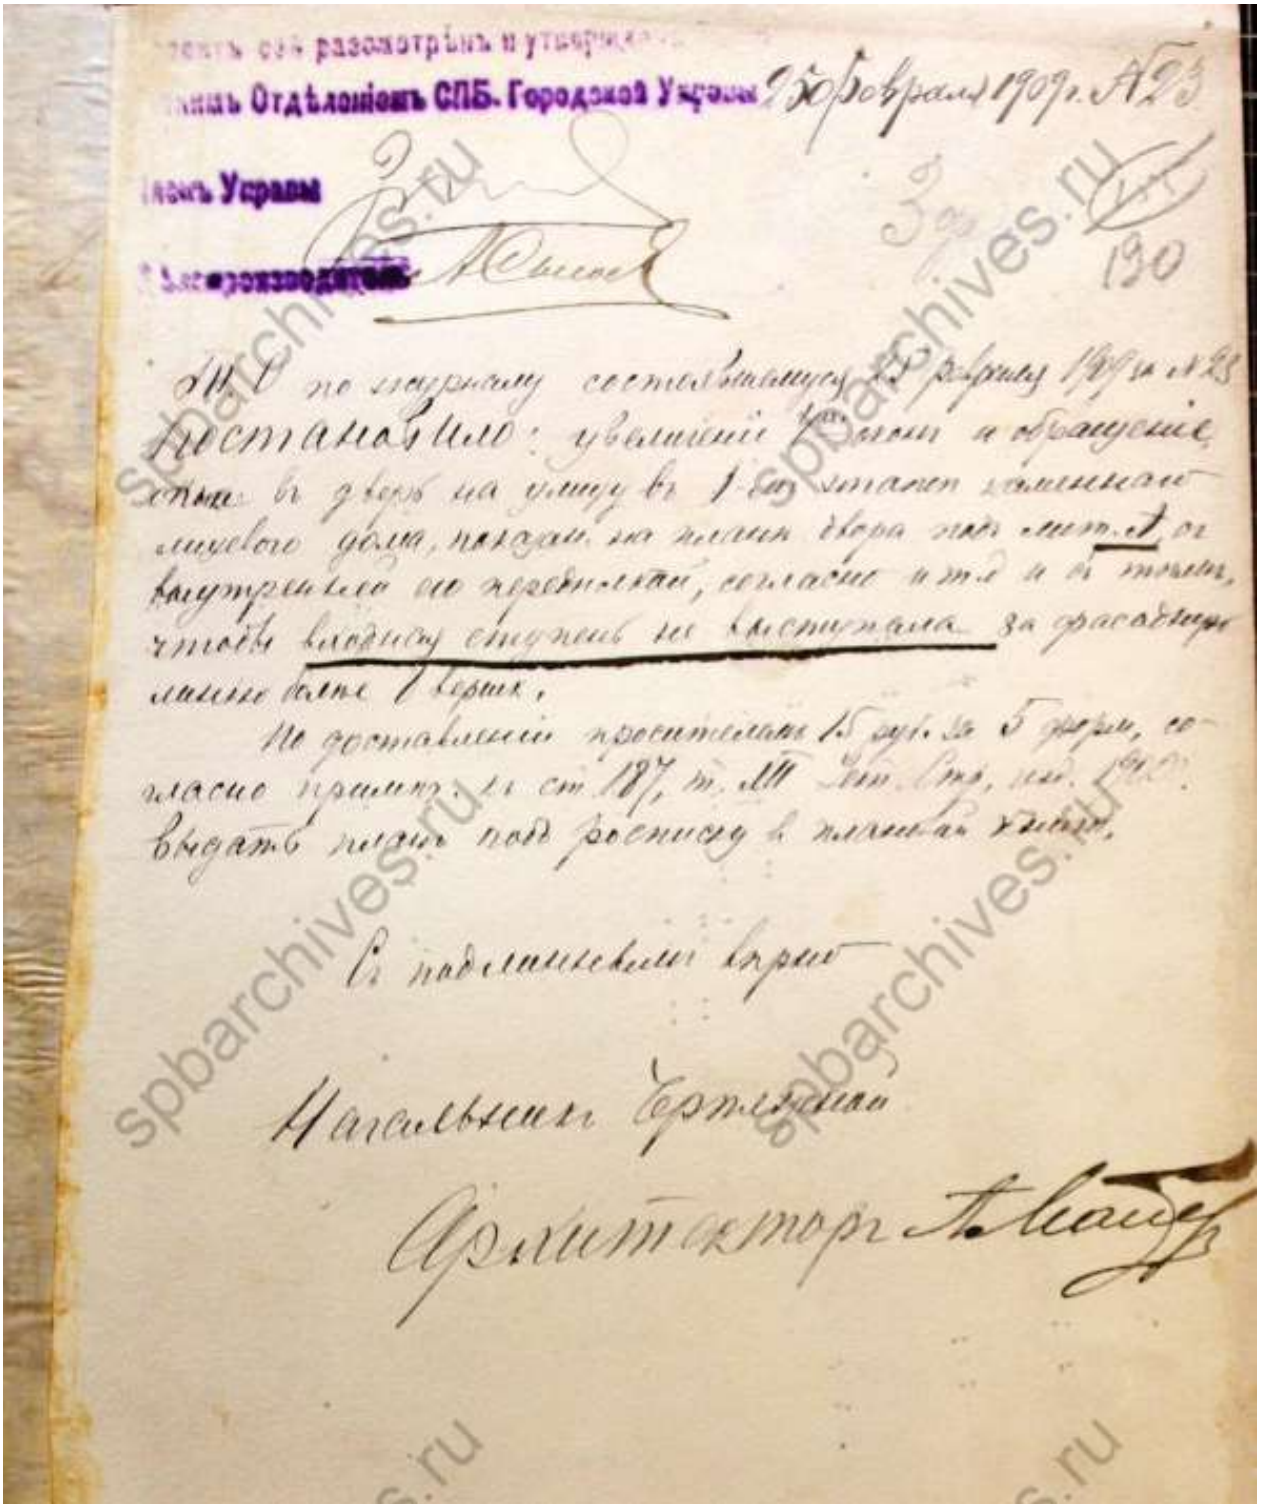 сей разсмотрѣнъ и утвержде
Отдѣленіемъ СПБ. Городской Управы 25 февраля 1909 г. № 23
Управы
190
Дѣлопроизводитель
Т. О по журналу состоявшемуся 25 февраля 1909 за № 23
постановило: увеличеніе окон и обращеніе
въ дверь на улицу въ 1-м этаже каменнаго
лицевого дома, показан. на планѣ двора под лит. А, съ
внутренней его передѣлкой, согласно и съ тѣмъ,
чтобы входная ступень не выступала за фасадную
линію болѣе 1 вершк.
По доставленіи просителемъ 15 руб. за 5 форм, со-
гласно примѣч. к ст. 187, т. XII Уст. Стр., изд. 1900
выдать планъ подъ росписку в плановой книгѣ.
Съ подлиннымъ вѣрно
Начальникъ Чертежной
Архитекторъ
spbarchives.ru
spbarchives.ru
spbarchives.ru
spbarchives.ru
s.ru
s.ru